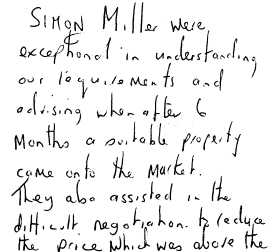 SIMON Miller were
exceptional in understanding
our requirements and
advising when after 6
Months a suitable property
came onto the Market.
They also assisted in the
difficult negotiation to reduce
the price which was above the